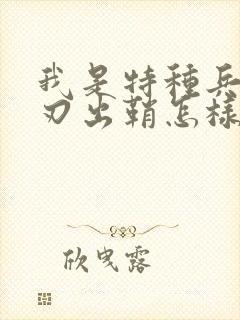 我是特種兵
刃出鞘怎樣
欣曳露